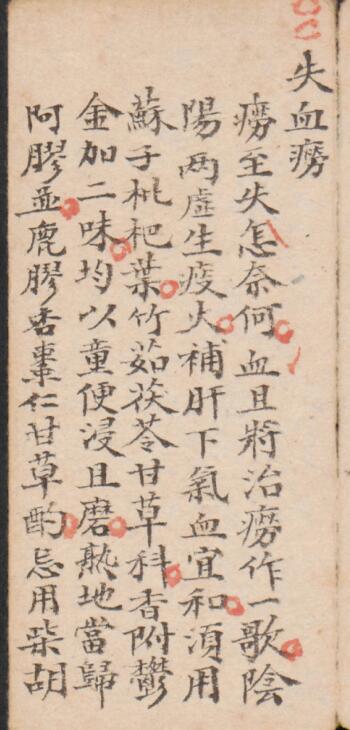 失血癆
癆至失怎奈何血且將治癆作一歌陰
陽两虛生痰火補肝下氣血宜和須用
蘇子枇杷葉竹茹茯苓甘草科香附鬱
金加二味均以童便浸且磨熟地當歸
阿膠並鹿膠杏棗仁甘草酌忌用柴胡